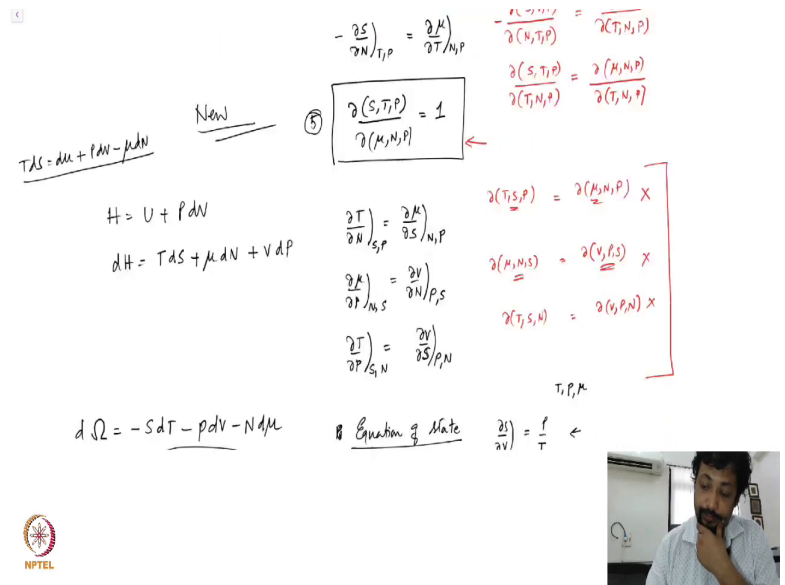 - ∂S/∂N)T,P = ∂μ/∂T)N,P
∂(N,T,P) = ∂(T,N,P)
∂(S,T,P)/∂(T,N,P) = ∂(μ,N,P)/∂(T,N,P)
New
⑤ ∂(S,T,P)/∂(μ,N,P) = 1
TdS = du + Pdv - μdN
H = U + PdN
dH = TdS + μdN + VdP
∂T/∂N)S,P = ∂μ/∂S)N,P
∂(T,S,P) = ∂(μ,N,P) ×
∂μ/∂P)N,S = ∂V/∂N)P,S
∂(μ,N,S) = ∂(V,P,S) ×
∂T/∂P)S,N = ∂V/∂S)P,N
∂(T,S,N) = ∂(V,P,N) ×
T,P,μ
dΩ = -SdT - pdV - Ndμ
Equation of state
∂S/∂V) = P/T ←
NPTEL